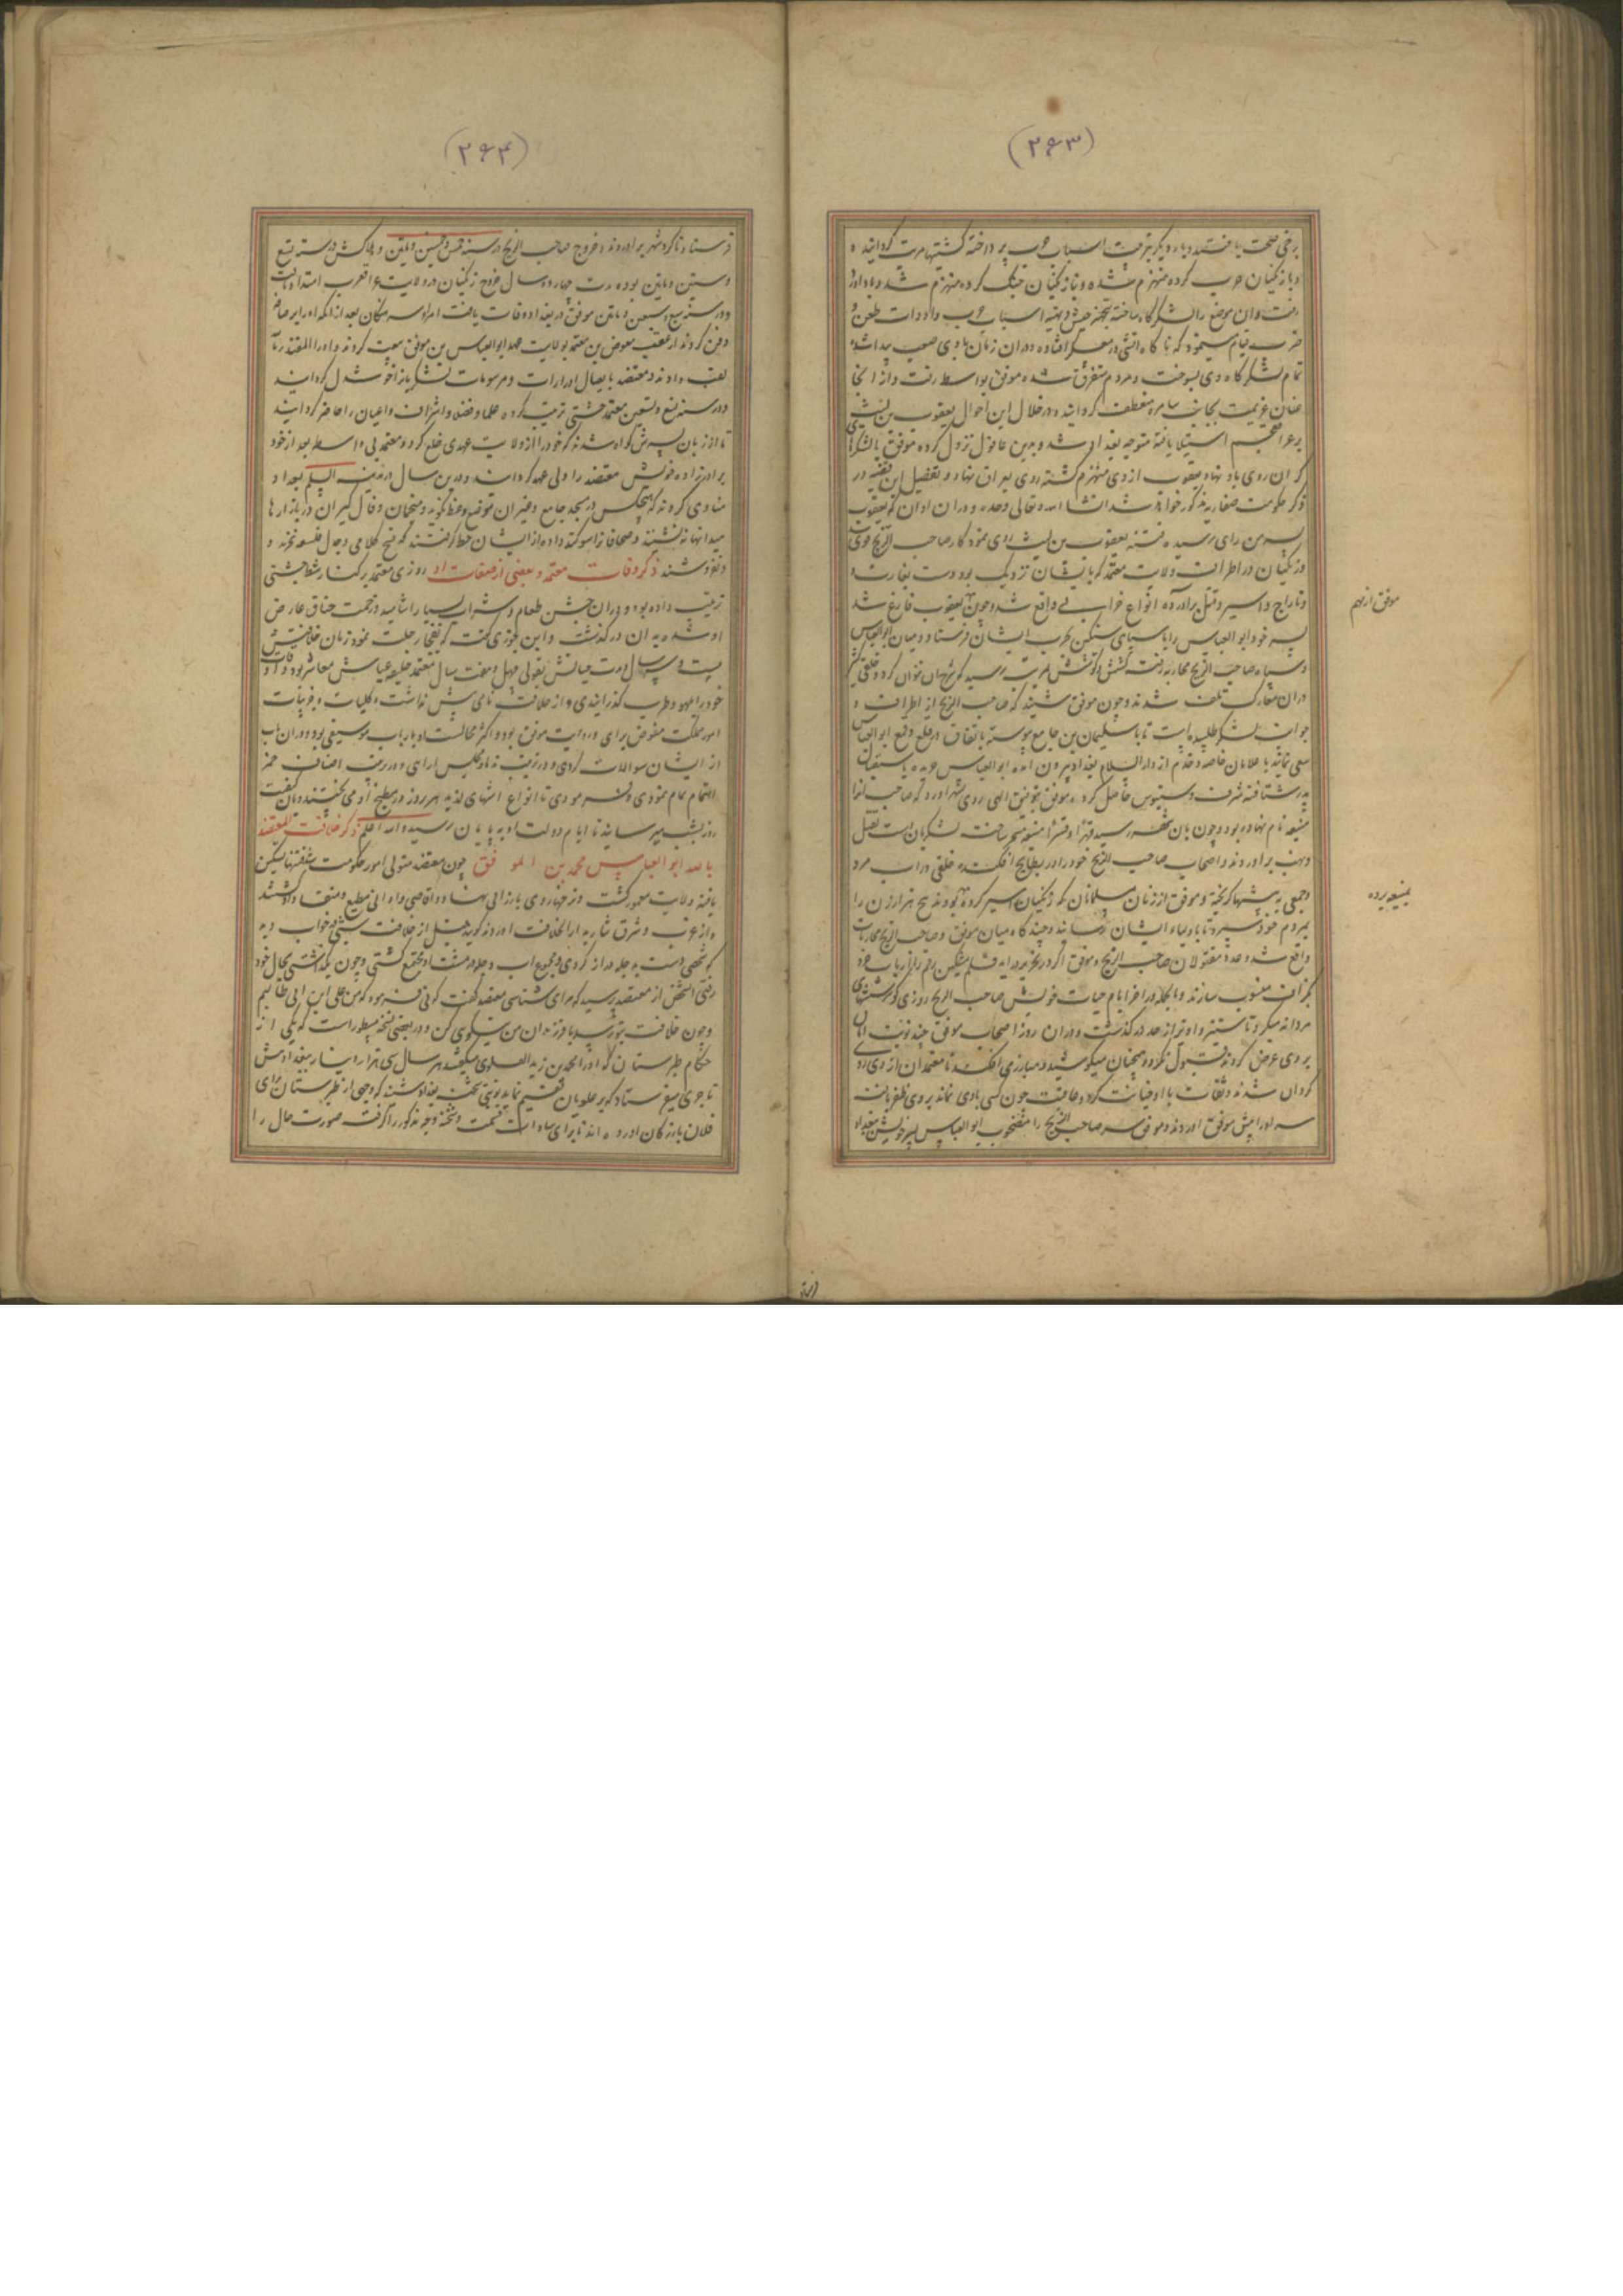 (۲۶۳)
برخی صحت یافتند دیگر بترتیب اسباب حرب پرداخته کشتیها مرتب کردانیده
و با زنکیان حرب کرده منهزم شده و بازنکیان جنک کرده منهزم شد
رفت و آن موضع را لشکرکاه ساخته بتجهیز جیش و تهیه اسباب حرب و ادوات طعن و
ضرب قیام مینمود که ناکاه آتشی در معسکر افتاده و در ان زمان بادی صعب پیدا شده
تمام لشکرکاه وی بسوخت و مردم متفرق شده موفق بواسط رفت و از انجا
عنان عزیمت بجانب سامره منعطف کردانید و در خلال این احوال یعقوب بن لیث
بر عراق عجم استیلا یافته متوجه بغداد شد و بدیر عاقول نزول کرده موفق با لشکرها
کران روی باو نهاد و یعقوب از وی منهزم کشته روی بعراق نهاد و تفصیل این قضیه در
ذکر حکومت صفاریه مذکور خواهد شد انشا الله تعالی وحده و در ان اوان که یعقوب
بسر من رای رسیده فتنه یعقوب بن لیث روی نمود کار صاحب الزنج قوی
و زنکیان در اطراف ولایت معتمد که بایشان نزدیک بود دست بغارت و
و تاراج و اسیر و قتل براورده انواع خرابی واقع شد و چون یعقوب فارغ شد
پسر خود ابو العباس را با سپاهی سنکین بحرب ایشان فرستاد و میان ابو العباس
و سپاه صاحب الزنج محاربه رفت کشش و کوشش بمرتبه رسید که شرح ان نتوان کرد و خلقی کثیر
دران معارک تلف شدند و چون موفق شنید که صاحب الزنج از اطراف و
جوانب لشکر طلبیده است تا با سلیمان بن جامع پیوسته باتفاق در قلع و قمع ابو العباس
سعی نمایند با غلامان خاصه و خدم از دار السلام بغداد بیرون امده ابو العباس
پدر شتافته شرف دستبوس حاصل کرد و موفق بتوفیق الهی روی بشهر اورد که صاحب انرا
منیعه نام نهاده بود و چون بان شهر رسید قهرا و قسرا منیعه مسخر ساخت لشکریان دست بقتل
و نهب براوردند و اصحاب صاحب الزنج خود را در بطایح افکنده خلقی در اب مرد
و جمعی به بیشتها کریخته و موفق از زنان مسلمانان که زنکیان اسیر کرده بودند پنج هزار زن را
بمردم خود سپرد تا باولیاء ایشان رسانند و چند کاه میان موفق و صاحب الزنج محاربات
واقع شد و عدد مقتولان صاحب الزنج و موفق اکر در تحریر اید قلم مشکین رقم را ارباب خرد
بکزاف منسوب سازند و بالجمله در اخر ایام حیات خویش صاحب الزنج روزی کوششهای
مردانه میکرد تا ستیز و اویز از حد درکذشت و دران روز اصحاب موفق چند نوبت امان
بر وی عرض کردند قبول نکرد و همچنان میکوشید و مبارز می افکند تا معتمدان از وی روی
کردان شدند و ثقات با او خیانت کرد و عاقبت چون کسی با وی نماند بر وی ظفر یافته
سر او را پیش موفق اوردند و موفق سر صاحب الزنج را مصحوب ابو العباس پسر خویش ببغداد
موفق از مهم
بمنیعه برده
(۲۶۴)
فرستاد تا کرد شهر براوردند و خروج صاحب الزنج در سنه خمس و خمسین و مایتین و هلاکش در سنه تسع
و ستین و مایتین بوده مدت چهارده سال خروج زنکیان در ولایت عراق عرب امتداد یافت
و در سنه سبع و سبعین و مایتین موفق در بغداد وفات یافت امراء بعد از انکه او را برصافه
دفن کردند از عقب معوض بن معتمد بولایت عهد ابو العباس بن موفق بیعت کردند و او را المعتضد بالله
لقب دادند و معتضد بایصال ادرارات و مرسومات لشکریانرا خوشدل کردانید
و در سنه تسع و سبعین معتمد جشنی ترتیب کرده علما و فضلا و اشراف و اعیان را حاضر کردانید
تا از زبان پسرش کواه شدند که خود را از ولایت عهدی خلع کرد و معتمد بی واسطه بعد از خود
برادرزاده خویش معتضد را ولی عهد کردانید و درین سال در مدینه السلم بغداد
منادی کردند که هیچکس در مسجد جامع و غیر ان موضع وعظ نکوید و منجمان و فال کیران در بازارها
میدانها ننشینند و صحافانرا سوکند داده از ایشان خط کرفتند که نسخ کلامی و جدل فلسفه نخرند و
و نفروشند ذکر وفات معتمد و بعضی از صفات او روزی معتمد بر کنار شط جشنی
ترتیب داده بود و دران جشن طعام و شراب بسیار اشامید و زحمت خناق عارض
او شده به ان درکذشت و ابن جوزی کفت که بفجا رحلت نمود زمان خلافتش
بیست و سه سال و مدت حیاتش بقولی چهل و هفت سال معتمد خلیفه عیاش معاشر بود و اوقات
خود را بلهو و طرب کذرانیدی و از خلافت نامی بیش نداشت و کلیات و جزئیات
امور مملکت مفوض برای و روایت موفق بود و اکثر مجالست او بارباب موسیقی بود و دران باب
از ایشان سوالات کردی و در ترتیب ندما و مجلس ارای و در زینت اصناف خمر
اهتمام تمام نمودی و فرمودی تا انواع اشهای لذیذ هر روز در مطبخ او می پختند و باین کیفیت
روز بشب میرسانید تا ایام دولت او به پایان رسید والله اعلم ذکر خلافت المعتضد
بالله ابو العباس محمد بن الموفق چون معتضد متولی امور حکومت شد فتنها تسکین
یافته ولایت معمور کشت و نرخها روی بارزانی نهاد و اقاصی و ادانی مطیع و منقاد او شدند
و از غرب و شرق نثار بدار الخلافت اوردند کویند قبل از خلافت شبی در خواب دید
که شخصی دست به دجله دراز کردی و مجموع اب دجله در مشت او مجتمع کشتی و چون بکذاشتی بحال خود
رفتی انشخص از معتضد پرسید که مرا می شناسی معتضد کفت که نی فرمود که من علی ابن ابی طالبم
و چون خلافت بتو رسد با فرزندان من نیکوی کن و در بعضی نسخه مسطور است که یکی از
حکام طبرستان که او را محمد بن زید العلوی میکفتند هر سال سی هزار دینار ببغداد پیش
تاجری میفرستاد که بر علویان قسمت نماید نوبتی شحنه بغداد شنید که وجهی از طبرستان برای
فلان بازرکان اورده اند تا برای سادات قسمت و شحنه وجه مذکور را کرفت صورت حال را